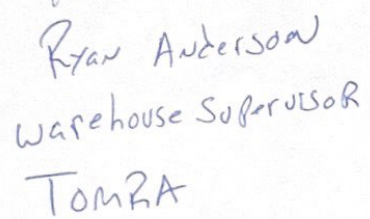 Ryan Anderson
Warehouse Supervisor
TOMRA